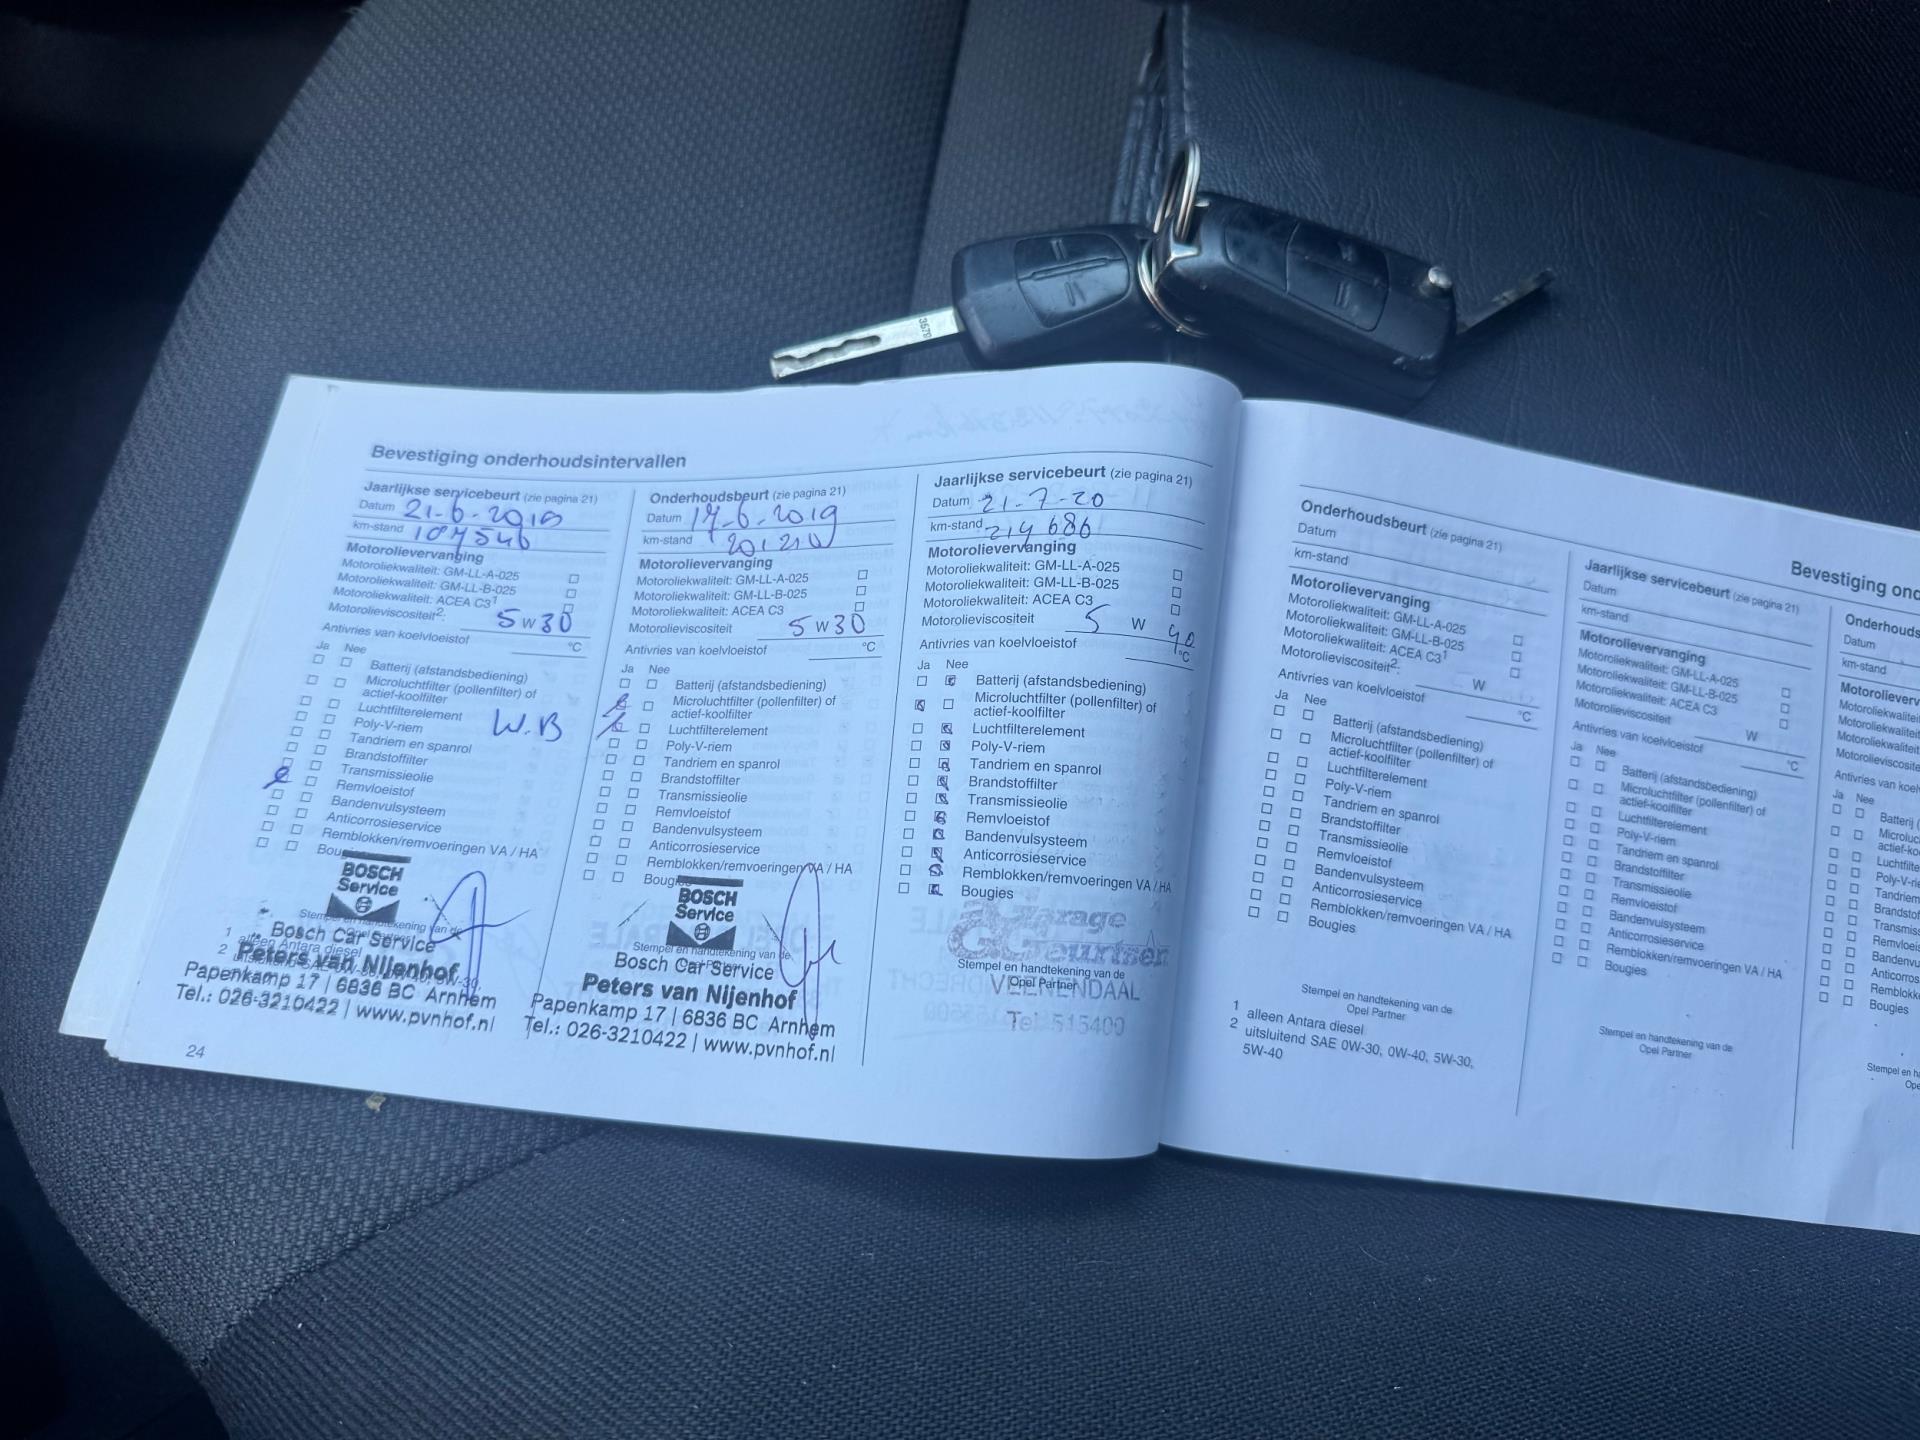 Bevestiging onderhoudsintervallen
Jaarlijkse servicebeurt (zie pagina 21)
Datum 21-6-2018
km-stand 187546
Motorolievervanging
Motoroliekwaliteit: GM-LL-A-025
Motoroliekwaliteit: GM-LL-B-025
Motoroliekwaliteit: ACEA C3¹
Motorolieviscositeit²: 5 W 30
Antivries van koelvloeistof °C
Ja Nee
Batterij (afstandsbediening)
Microluchtfilter (pollenfilter) of
actief-koolfilter
Luchtfilterelement
W.B
Poly-V-riem
Tandriem en spanrol
Brandstoffilter
Transmissieolie
Remvloeistof
Bandenvulsysteem
Anticorrosieservice
Remblokken/remvoeringen VA / HA
BOSCH
Service
Bosch Car Service
1 alleen Antara diesel
2
Peters van Nijenhof
Papenkamp 17 | 6836 BC Arnhem
Tel.: 026-3210422 | www.pvnhof.nl
24
Onderhoudsbeurt (zie pagina 21)
Datum 17-6-2019
km-stand
Motorolievervanging
Motoroliekwaliteit: GM-LL-A-025
Motoroliekwaliteit: GM-LL-B-025
Motoroliekwaliteit: ACEA C3
Motorolieviscositeit 5 W 30
Antivries van koelvloeistof °C
Ja Nee
Batterij (afstandsbediening)
Microluchtfilter (pollenfilter) of
actief-koolfilter
Luchtfilterelement
Poly-V-riem
Tandriem en spanrol
Brandstoffilter
Transmissieolie
Remvloeistof
Bandenvulsysteem
Anticorrosieservice
Remblokken/remvoeringen VA / HA
Bougies
BOSCH
Service
Stempel en handtekening van de
Bosch Car Service
Peters van Nijenhof
Papenkamp 17 | 6836 BC Arnhem
Tel.: 026-3210422 | www.pvnhof.nl
Jaarlijkse servicebeurt (zie pagina 21)
Datum 21-7-20
km-stand 214686
Motorolievervanging
Motoroliekwaliteit: GM-LL-A-025
Motoroliekwaliteit: GM-LL-B-025
Motoroliekwaliteit: ACEA C3
Motorolieviscositeit 5 W 40
Antivries van koelvloeistof °C
Ja Nee
Batterij (afstandsbediening)
Microluchtfilter (pollenfilter) of
actief-koolfilter
Luchtfilterelement
Poly-V-riem
Tandriem en spanrol
Brandstoffilter
Transmissieolie
Remvloeistof
Bandenvulsysteem
Anticorrosieservice
Remblokken/remvoeringen VA / HA
Bougies
Garage
G. Geurtsen
Stempel en handtekening van de
Opel Partner
VEENENDAAL
Tel. 515400
Onderhoudsbeurt (zie pagina 21)
Datum
km-stand
Motorolievervanging
Motoroliekwaliteit: GM-LL-A-025
Motoroliekwaliteit: GM-LL-B-025
Motoroliekwaliteit: ACEA C3¹
Motorolieviscositeit²: W
Antivries van koelvloeistof °C
Ja Nee
Batterij (afstandsbediening)
Microluchtfilter (pollenfilter) of
actief-koolfilter
Luchtfilterelement
Poly-V-riem
Tandriem en spanrol
Brandstoffilter
Transmissieolie
Remvloeistof
Bandenvulsysteem
Anticorrosieservice
Remblokken/remvoeringen VA / HA
Bougies
Stempel en handtekening van de
Opel Partner
1 alleen Antara diesel
2 uitsluitend SAE 0W-30, 0W-40, 5W-30,
5W-40
Bevestiging
Jaarlijkse servicebeurt (zie pagina 21)
Datum
km-stand
Motorolievervanging
Motoroliekwaliteit: GM-LL-A-025
Motoroliekwaliteit: GM-LL-B-025
Motoroliekwaliteit: ACEA C3
Motorolieviscositeit W
Antivries van koelvloeistof °C
Ja Nee
Batterij (afstandsbediening)
Microluchtfilter (pollenfilter) of
actief-koolfilter
Luchtfilterelement
Poly-V-riem
Tandriem en spanrol
Brandstoffilter
Transmissieolie
Remvloeistof
Bandenvulsysteem
Anticorrosieservice
Remblokken/remvoeringen VA / HA
Bougies
Stempel en handtekening van de
Opel Partner
Datum
km-stand
Ja Nee
Bougies